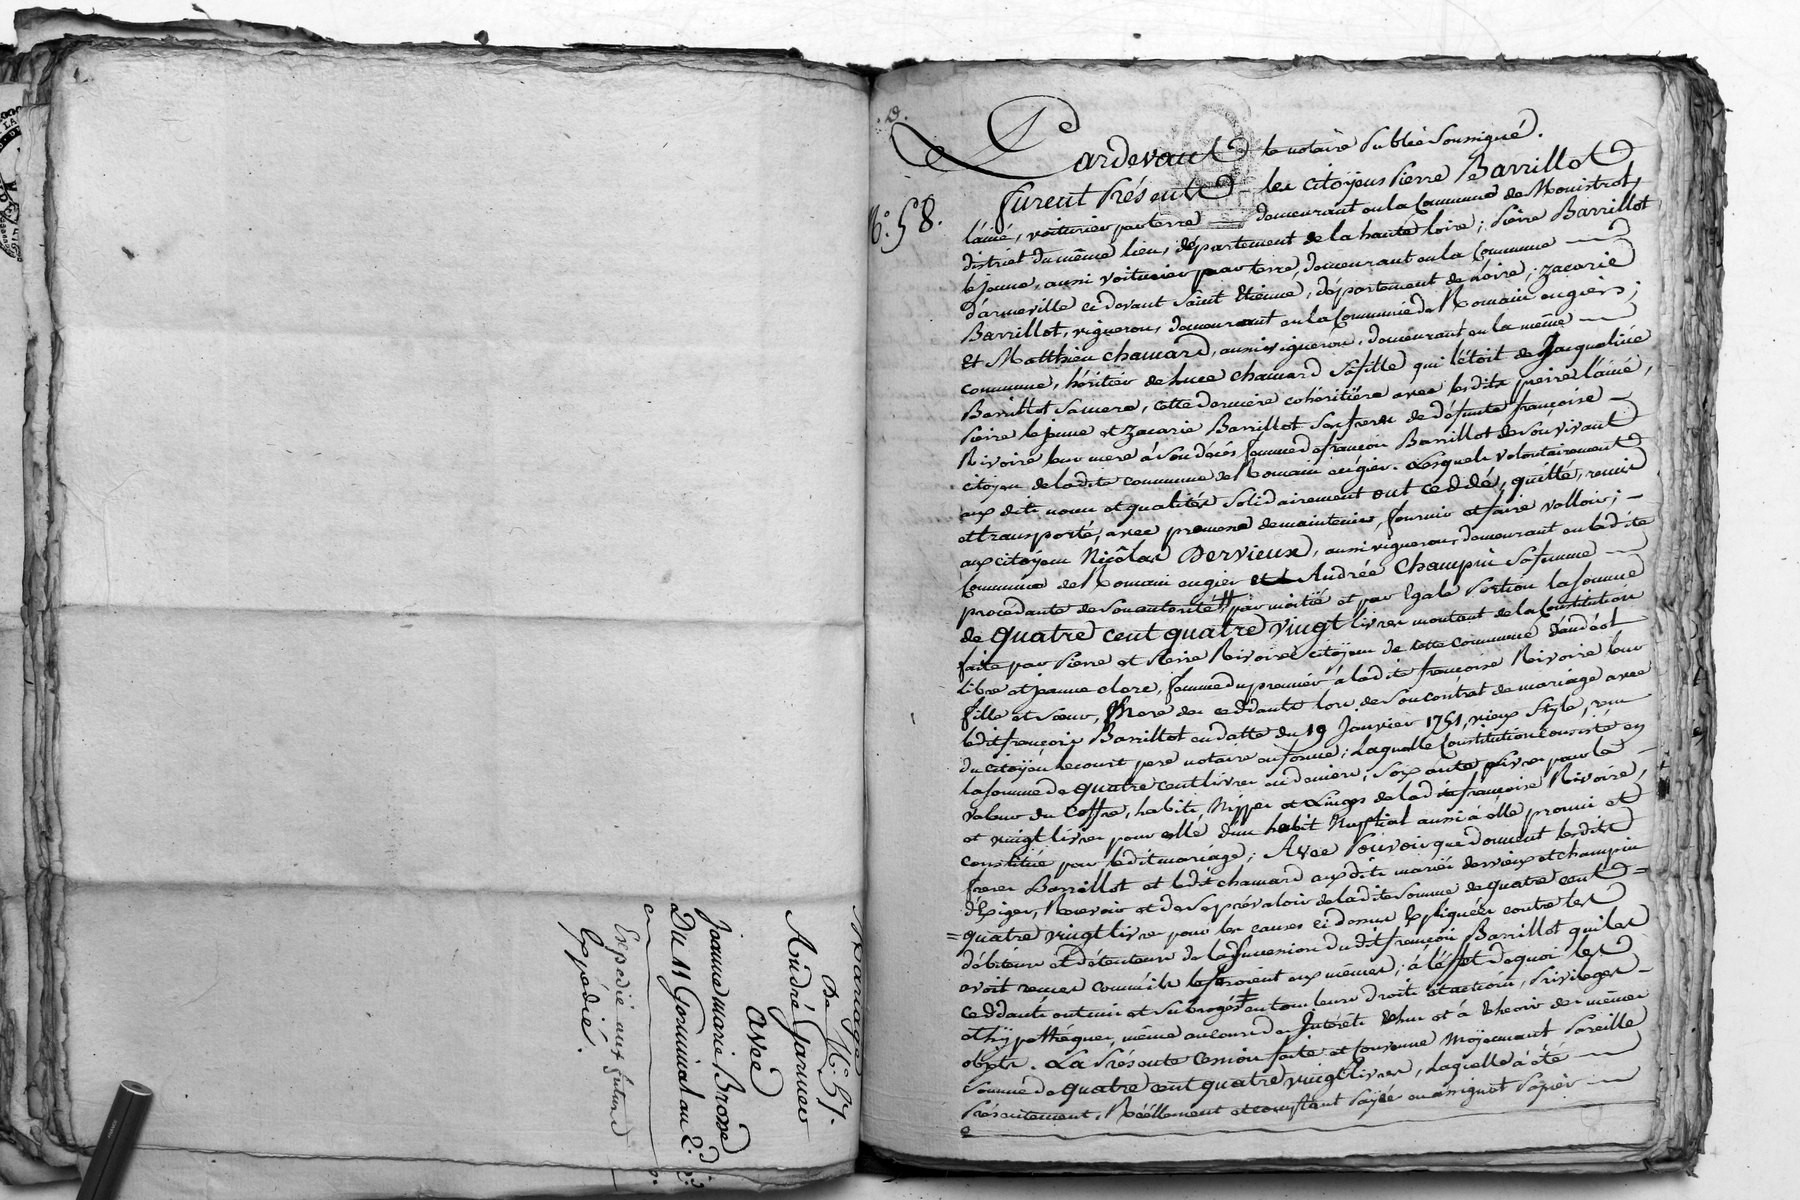 Mariage
De N.° 57.
André Garnier
avec
Jeanne marie Brosse
Du 11 Germinal an 2.d
Expédié aux futurs
Expédié.
N.° 58.
Pardevant le notaire Public Soussigné.
furent Présents les citoyens Pierre Barrillot
l'ainé, voiturier par terre demeurant en la Commune de Monistrol,
district du même lieu, département de la haute loire; Pierre Barrillot
le jeune, aussi voiturier par terre, demeurant en la Commune
d'armeville ci devant Saint Etienne, département de Loire; zacarie
Barrillot, vigneron, demeurant en la Commune de Romain en giers;
et Matthieu chamard, aussi vigneron, demeurant en la même
commune, héritier de Luce chamard Sa fille qui l'étoit de Jacqueline
Barrillot Sa mere, cette derniere cohéritière avec lesdits pierre l'ainé,
Pierre le jeune et zacarie Barrillot Ses freres de défunte françoise
Rivoire leur mere à Son décés femme de françois Barrillot de Son vivant
citoyen de ladite commune de Romain en gier. Lesquels volontairement
aux dits noms et qualités Solidairement ont ceddé, quitté, remis
et transporté, avec promesse de maintenir, fournir et faire valloir;
aux citoyen Nicolas Dervieux, aussi vigneron, demeurant en ladite
Commune de Romain en gier et à Andrée Champin Sa femme
procédante de Son autorité, par moitié et par Egale Portion la Somme
de quatre cent quatre vingt livres montant de la Constitution
faite par Pierre et Pierre Rivoire citoyens de cette Commune
libre et jeanne clere, femme du premier à ladite françoise Rivoire leur
fille et Sœur, Mere des ceddants lors de Son contrat de mariage avec
ledit françois Barrillot en datte du 19 Janvier 1751, vieux Style, reçu
du citoyen Lecourt pere notaire en forme; Laquelle Constitution consiste en
la Somme de quatre cent livres en deniers, Soixante livres pour la
valeur du Coffre, habits, Nippes et Linges de ladite françoise Rivoire,
et vingt livres pour celle d'un habit Nuptial aussi à elle promis et
constitué par ledit mariage; Avec Pouvoir que donnent lesdits
freres Barrillot et ledit chamard auxdits mariés dervieux et champin
d'Exiger, Recevoir et de Se prévaloir de ladite Somme de quatre cent
quatre vingt livres pour les causes ci dessus Expliquées contre les
débiteurs et détenteurs de la Succession dudit françois Barrillot qui les
avoit reçues comme ils le feroient eux mêmes; à l'effet de quoi les
ceddants ont mis et Subrogés en tous leurs droits et actions, Privileges
et hypothéques, même au cours des Intérêts Echus et à Echeoir des mêmes
objets. La Présente Cession faite et Convenue Moyennant Pareille
Somme de quatre cent quatre vingt livres, Laquelle a été
Présentement, Réellement et comptant Payée en assignat Papier